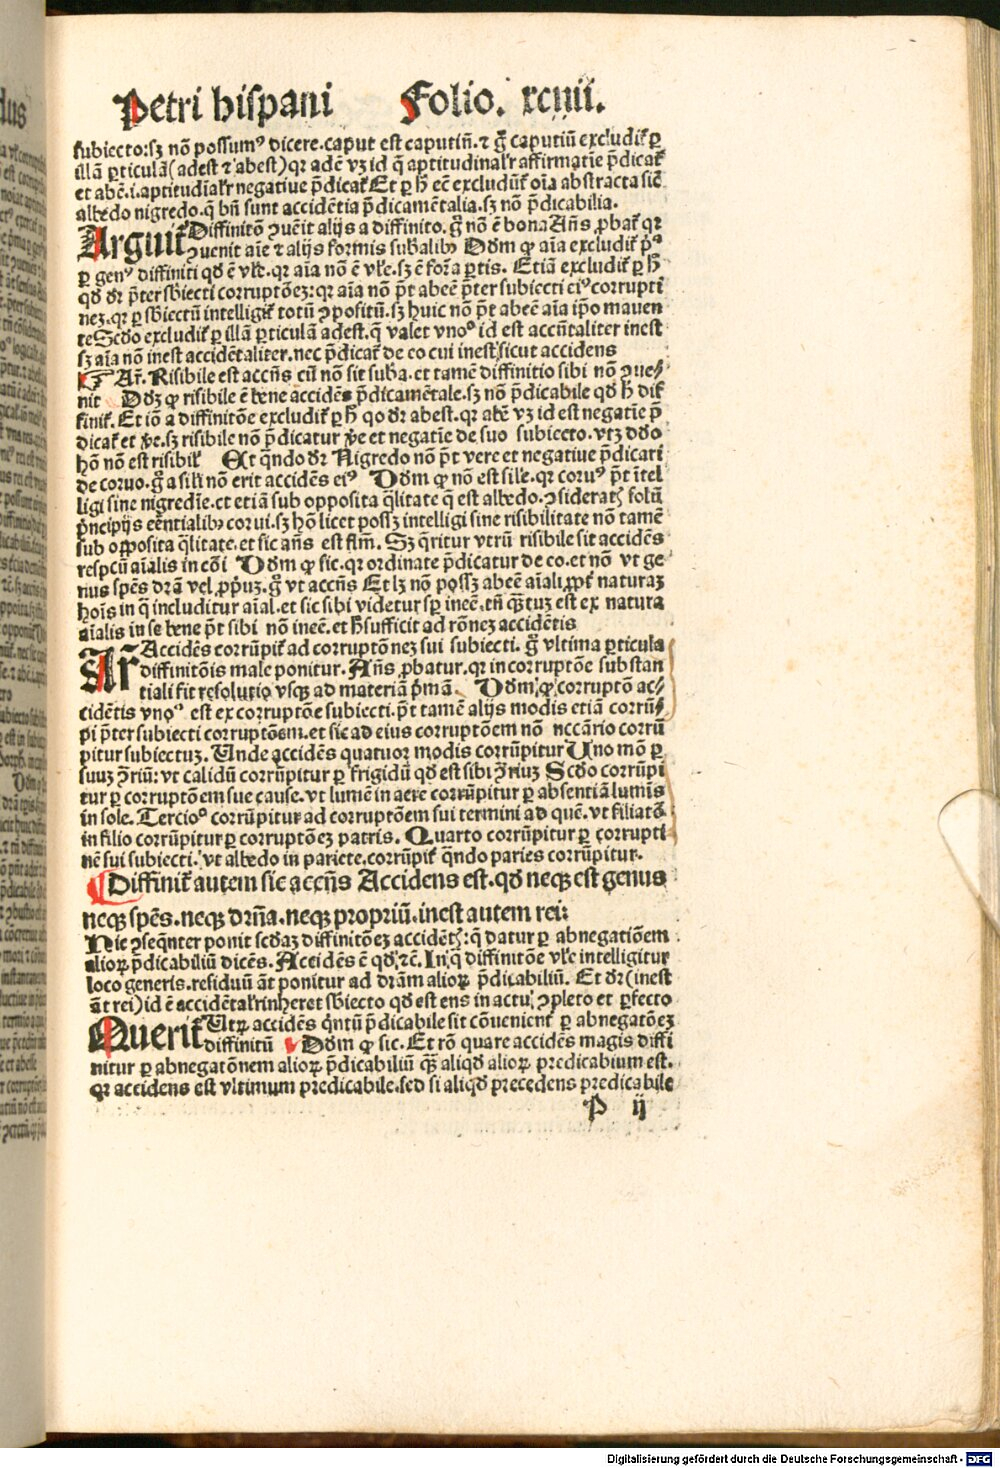 Petri hispani Folio. xciiii.
subiecto:sꝫ nō possumꝰ dicere.caput est caputiū.⁊ g̃ caputiū excludit᷑ ꝑ
illā ꝑticulā(adest ⁊ abest)qꝛ adē vꝫ id q̄ aptitudinalr̃ affirmatīe p̄dicat᷑
et abē.i.aptitudīalr̃ negatiue p̄dicat᷑ Et ꝑ h̄ eē excludūt᷑ oīa abstracta sic̄
albedo nigredo.q̄ bn̄ sunt accidētia p̄dicamētalia.sꝫ nō p̄dicabilia.
Arguit᷑ Diffinitō ꝯuēit alijs a diffinito.g̃ nō ē bona Añs ꝓbat᷑ qꝛ
ꝯuenit aīe ⁊ alijs formis subalibꝫ Dōm ꝙ aīa excludit᷑ p̄ꝰ
ꝑ genꝰ diffiniti qd̄ ē vle.qꝛ aīa nō ē vle.sꝫ ē foꝛa ꝑtis. Etiā excludit᷑ ꝑ h̄
qd̄ dꝛ p̄ter sb̄iecti corruptōeꝫ:qꝛ aīa nō p̄t abeē p̄ter subiecti eiꝰ corrupti
neꝫ.qꝛ ꝑ sb̄iectū intelligit᷑ totū ꝯpositū.sꝫ huic nō p̄t abeē aīa ip̄o mauen
te Scd̄o excludit᷑ ꝑ illā ꝑticulā adest.q̄ valet vnoꝰ id est accn̄taliter inest
sꝫ aīa nō inest accidētaliter.nec p̄dicat᷑ de eo cui inest sicut accidens
☞ Ar̃. Risibile est accn̄s cū nō sit suba.et tamē diffinitio sibi nō ꝯue⸗
nit Dd̄ꝫ ꝙ risibile ē bene accidēs p̄dicamētale.sꝫ nō p̄dicabile qd̄ h̄ dif
finit᷑. Et iō a diffinitōe excludit᷑ ꝑ h̄ qd̄ dꝛ abest.qꝛ abē vꝫ id est negatīe p̄
dicat᷑ et v̄e.sꝫ risibile nō p̄dicatur v̄e et negatīe de suo subiecto.vtꝫ dd̄o
hō nō est risibil᷑ Et qn̄do dꝛ Nigredo nō p̄t vere et negatiue p̄dicari
de coruo.g̃ a sili nō erit accidēs eiꝰ Dōm ꝙ nō est sile.qꝛ coruꝰ p̄t ītel
ligi sine nigredīe.et etiā sub opposita q̄litate q̄ est albedo.ꝯsideratꝭ solū
p̄ncipijs eēntialibꝫ corui.sꝫ hō licet possꝫ intelligi sine risibilitate nō tamē
sub opposita q̄litate.et sic añs est flm̄. Sꝫ q̄ritur vtrū risibile sit accidēs
respcū aīalis in cōi Dōm ꝙ sic.qꝛ ordinate p̄dicatur de eo.et nō vt ge
nus spēs dr̄a vel ꝓpꝛiuꝫ.g̃ vt accn̄s Et lꝫ nō possꝫ abeē aīali ꝓpt᷑ naturaꝫ
hoīs in q̄ includitur aīal.et sic sibi videtur sꝑ ineē.tn̄ q̄ꝫtuꝫ est ex natura
aīalis in se bene p̄t sibi nō ineē.et h̄ sufficit ad rōneꝫ accidētis
Ar̃ Accidēs corrūpit᷑ ad corruptōneꝫ sui subiecti. g̃ vltima ꝑticula
diffinitōis male ponitur. Añs ꝓbatur.qꝛ in corruptōe substan
tiali fit resolutio vsqꝫ ad materiā p̄mā. Dōm ꝙ corruptō ac⸗
cidētis vnoꝰ est ex corruptōe subiecti.p̄t tamē alijs modis etiā corrū⸗
pi p̄ter subiecti corruptōem.et sic ad eius corruptōem nō nccārio corrū
pitur subiectuꝫ. Unde accidēs quatuor modis corrūpitur Uno mō ꝑ
suuꝫ ꝯ̄riū: vt calidū corrūpitur ꝑ frigidū qd̄ est sibi ꝯ̄riuꝫ Scd̄o corrūpi
tur ꝑ corruptōem sue cause.vt lumē in aere corrūpitur ꝑ absentiā lumīs
in sole. Tercioꝰ corrūpitur ad corruptōem sui termini ad quē.vt filiatō
in filio corrūpitur ꝑ corruptōeꝫ patris. Quarto corrūpitur ꝑ corrupti⸗
nē sui subiecti. vt albedo in pariete.corrūpit᷑ qn̄do paries corrūpitur.
Diffinit᷑ autem sic accn̄s Accidens est.qd̄ neqꝫ est genus
neqꝫ spēs.neqꝫ drn̄a.neqꝫ propriū.inest autem rei:
Hic ꝯseqn̄ter ponit scd̄aꝫ diffinitōeꝫ accidētꝭ:q̄ datur ꝑ abnegatiōem
alioꝝ p̄dicabiliū dicēs. Accidēs ē qd̄ ⁊c̄. In q̄ diffinitōe vle intelligitur
loco generis.residuū āt ponitur ad dr̄am alioꝝ p̄dicabiliū. Et dꝛ(inest
āt rei)id ē accidētalr̃ inheret sb̄iecto qd̄ est ens in actu ꝯpleto et ꝑfecto
Querit᷑ Utꝝ accidēs qn̄tū p̄dicabile sit cōuenient᷑ ꝑ abnegatōeꝫ
diffinitū Dōm ꝙ sic. Et rō quare accidēs magis diffi
nitur ꝑ abnegatōnem alioꝝ p̄dicabiliū q̄ꝫ aliqd̄ alioꝝ predicabium est.
qꝛ accidens est vltimum predicabile.sed si aliqd̄ precedens predicabile
P ij
Digitalisierung gefördert durch die Deutsche Forschungsgemeinschaft - DFG